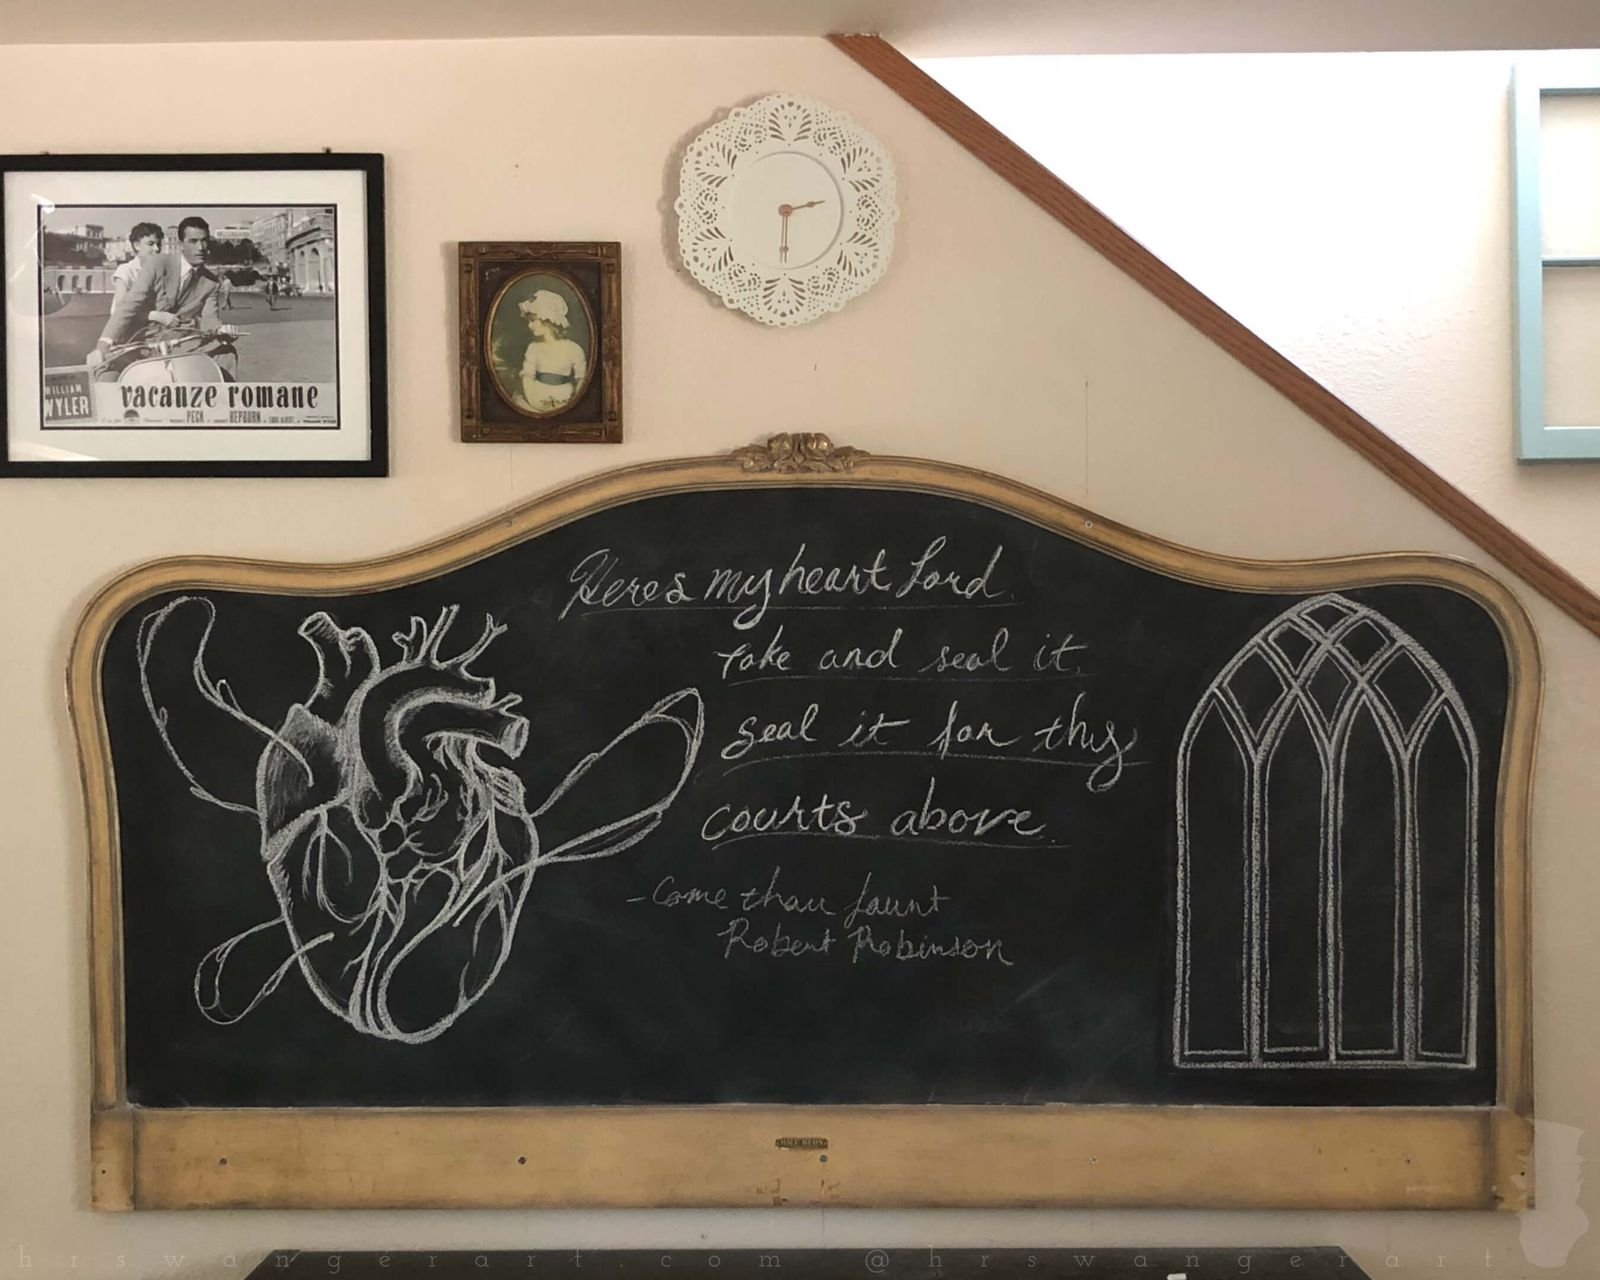 WILLIAM
WYLER
vacanze romane
PECK HEPBURN
Heres my heart Lord
take and seal it,
seal it for thy
courts above.
-Come thou fount
Robert Robinson
hrswangerart.com @hrswangerart